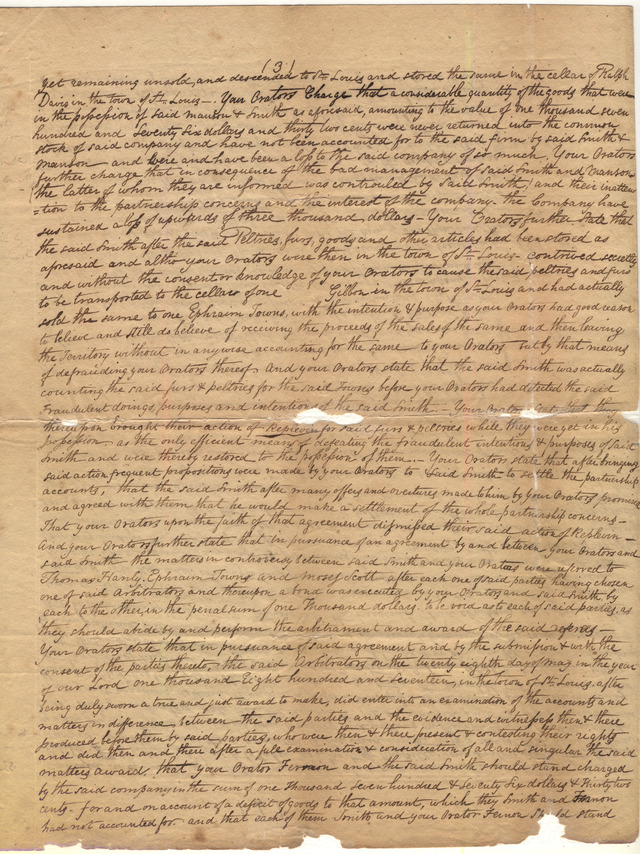 (3)
yet remaining unsold, and descended to St. Louis and stored the same in the cellar of Ralph
Davis in the town of St. Louis — Your Orators Charge that a considerable quantity of the goods that were
in the possession of said Manson & Smith as aforesaid, amounting to the value of one thousand seven
hundred and Seventy Six dollars and thirty two cents were never returned into the common
stock of said company and have not been accounted for to the said firm by said Smith &
Manson — and were and have been a loss to the said company of so much, Your Orators
further charge that in consequence of the bad management of Said Smith and Manson
the latter of whom they are informed was controuled by Said Smith, and their inatten
=tion to the partnership concerns and the interest of the company. the Company have
sustained a loss of upwards of three thousand dollars — Your Orators further State that
the said Smith after the said Peltries, furs, goods and other articles had been stored as
aforesaid and altho your Orators were then in the town of St. Louis — contrived secretly
and without the consent or knowledge of your Orators to cause the said peltries and furs
to be transported to the cellar of one Gibbon in the town of St. Louis and had actually
sold the same to one Ephraim Towns, with the intention & purpose as your Orators had good reason
to believe and still do believe of receiving the proceeds of the sales of the same and then leaving
the Territory without in anywise accounting for the same to your Orators but by that means
of defrauding your Orators thereof — And your Orators state that the said Smith was actually
counting the said furs & peltries for the said Towns before your Orators had detected the said
fraudulent doings, purposes and intentions of the said Smith — Your Orators State that they
thereupon brought their action of Replevin for said furs & peltries while they were yet in his
possession — as the only efficient means of defeating the fraudulent intentions & purposes of said
Smith and were thereby restored to the possession of them — Your Orators state that after bringing
said action, frequent propositions were made by your Orators to said Smith to settle the partnership
accounts, that the said Smith after many offers and overtures made to him by your Orators promised
and agreed with them that he would make a settlement of the whole partnership concerns —
That your Orators upon the faith of that agreement dismissed their said action of Replevin —
And your Orators further state that in pursuance of an agreement by and between your Orators and
said Smith the matters in controversy between said Smith and your Orators were referred to
Thomas Hanly, Ephraim Towns and Moses Scott after each one of said parties having chosen
one of said Arbitrators and thereupon a bond was executed by your Orators and said Smith by
each to the other, in the penal sum of one Thousand dollars to be void as to each of said parties, as
they should abide by and perform the arbitrament and award of the said referees —
Your Orators state that in pursuance of said agreement and by the submission & with the
consent of the parties thereto, the said Arbitrators on the twenty eighth day of May in the year
of our Lord one thousand Eight hundred and Seventeen, in the town of St. Louis, after
being duly sworn a true and just award to make, did enter into an examination of the accounts and
matters in difference between the said parties and the evidence and witnesses then & there
produced before them by said parties, who were then & there present & contesting their rights
and did then and there after a full examination & consideration of all and singular the said
matters award, that your Orator and the said Smith should stand charged
by the said company in the sum of one Thousand Seven hundred & Seventy Six dollars & thirty two
cents — for and on account of a deficit of goods to that amount, which they Smith and
had not accounted for and that each of them Smith and your Orator should stand